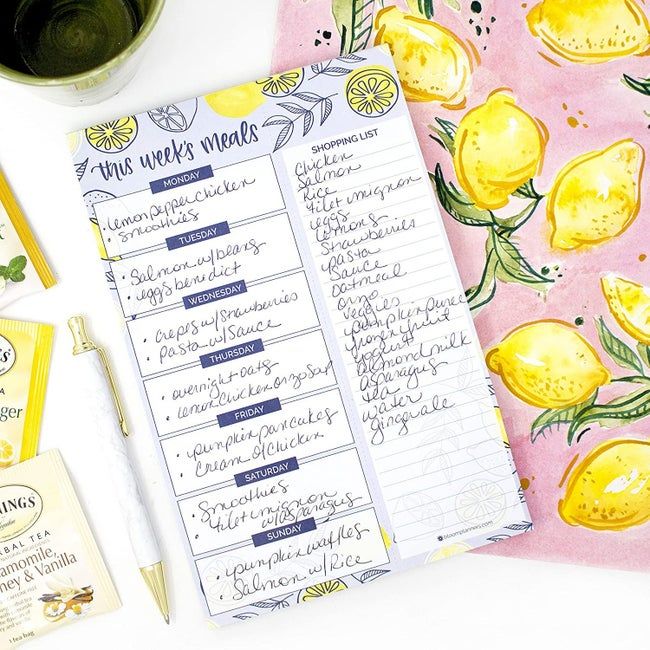 this week's meals
MONDAY
• lemon pepper chicken
• smoothies
TUESDAY
• Salmon w/ beans
• eggs benedict
WEDNESDAY
• crepes w/ strawberries
• pasta w/ Sauce
THURSDAY
• overnight oats
• lemon Chicken orzo Soup
FRIDAY
• pumpkin pancakes
• Cream of Chicken
SATURDAY
• Smoothies
• filet mignon
w/ asparagus
SUNDAY
• pumpkin waffles
• Salmon w/ Rice
SHOPPING LIST
Chicken
Salmon
Rice
filet mignon
eggs
lemons
Strawberries
Pasta
Sauce
oatmeal
orzo
veggies
pumpkin puree
frozen fruit
yogurt
almond milk
asparagus
tea
water
gingerale
bloomplanners.com
NINGS
HERBAL TEA
Chamomile,
ney & Vanilla
1 tea bag